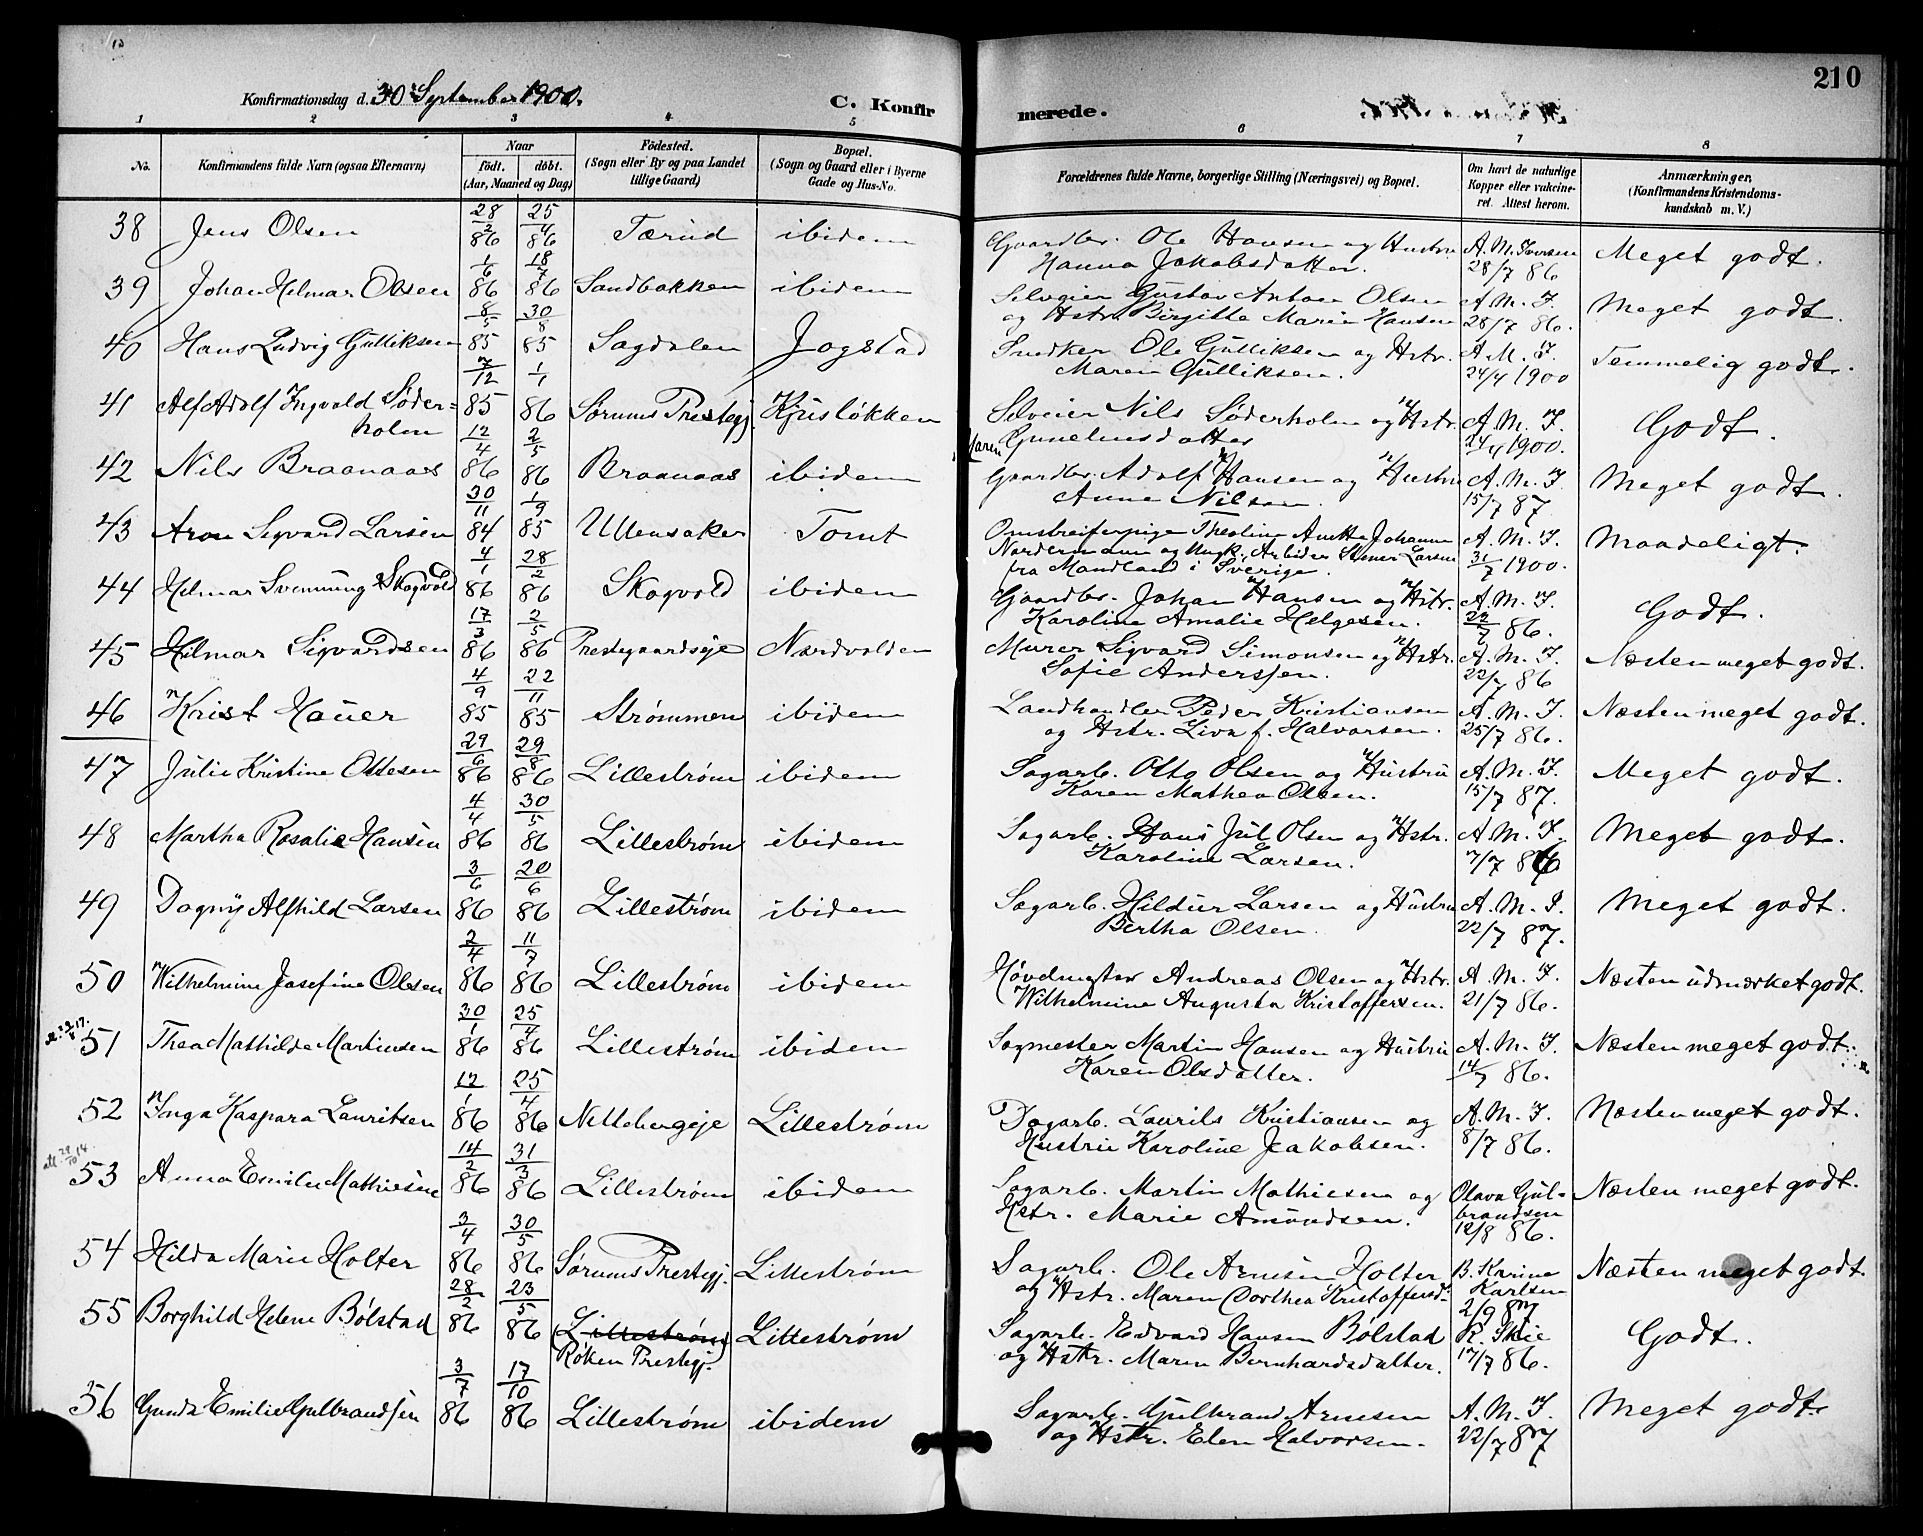 210
Konfirmationsdag d. 30 September 1900.
C. Konfir
merede.
1 2 3 4 5 6 7 8
No.
Konfirmandens fulde Navn (ogsaa Efternavn)
Naar
födt. döbt.
(Aar, Maaned og Dag)
Födested.
(Sogn eller By og paa Landet
tillige Gaard)
Bopæl.
(Sogn og Gaard eller i Byerne
Gade og Hus-No.
Forældrenes fulde Navne, borgerlige Stilling (Næringsvei) og Bopæl.
Om havt de naturlige
Kopper eller vakcine-
ret. Attest herom.
Anmærkninger,
(Konfirmandens Kristendoms-
kundskab m. V.)
38 Jens Olsen 28/2 86 25/4 86 Tærud ibidem Gaardbr. Ole Hansen og Hustru A. M. Iversen Meget godt.
Hanna Jakobsdatter. 28/7 86
39 Johan Helmar Olsen 1/6 86 18/7 86 Sandbakken ibidem Selveier Gustav Antoen Olsen A. M. I. Meget godt.
og Hstr. Birgitte Marie Hansen 28/7 86.
40 Hans Ludvig Gulliksen 8/5 85 30/8 85 Sagdalen Jogstad Snedker Ole Gulliksen og Hstr. A. M. I. Temmelig godt.
Maren Gulliksen. 24/4 1900
41 Alf Adolf Ingvald Söder= 7/12 85 1/1 86 Sørums Prestegj. Kjusløkken Selveier Nils Söderholm og Hstr. A. M. I. Godt.
holm Maren Gunelensdatter 24/4 1900.
42 Nils Braanaas 12/4 86 2/5 86 Braanaas ibidem Gaardbr. Adolf Hansen og Hustru A. M. I. Meget godt.
Anne Nilsen. 15/7 87.
43 Aron Sigvard Larsen 30/11 84 1/9 85 Ullensaker Tomt Omstreiferpige Theoline Anette Johanne A. M. I. Maadeligt.
Nordermann og Ungk. Arbeider Stener Larsen 31/7 1900.
fra Mandland i Sverige.
44 Helmar Svennung Skogvold 4/1 86 28/2 86 Skogvold ibidem Gaardbr. Johan Hansen og Hstr. A. M. I. Godt.
Karoline Amalie Helgesen. 22/7 86.
45 Hilmar Sigvardsen 17/3 86 2/5 86 Prestegaardseje Nordvolden Murer Sigvard Simonsen og Hstr. A. M. I. Næsten meget godt.
Sofie Anderssen. 22/7 86
46 Krist Hauer 4/9 85 22/11 85 Strømmen ibidem Landhandler Peder Kristiansen A. M. I. Næsten meget godt.
og Hstr. Liva f. Halvorsen. 25/7 86.
47 Julie Kristine Ottesen 29/6 86 29/8 86 Lillestrøm ibidem Sagarb. Otto Olsen og Hustru A. M. I. Meget godt.
Karen Mathea Olsen. 15/7 87.
48 Martha Rosalie Hansen 4/4 86 30/5 86 Lillestrøm ibidem Sagarb. Hans Jul Olsen og Hstr. A. M. I. Meget godt.
Karoline Larsen. 7/7 86
49 Dagny Alfhild Larsen 3/6 86 20/6 86 Lillestrøm ibidem Sagarb. Hildur Larsen og Hustru A. M. I. Meget godt.
Bertha Olsen. 22/7 87.
50 Wilhelmine Josefine Olsen 2/4 86 11/7 86 Lillestrøm ibidem Høvelmester Andreas Olsen og Hstr. A. M. I. Næsten udmærket godt.
Wilhelmine Augusta Kristoffersen. 21/7 86.
51 Thea Mathilde Martinsen 30/1 86 25/4 86 Lillestrøm ibidem Sagmester Martin Hansen og Hustru A. M. I. Næsten meget godt.
Karen Olsdatter. 14/7 86.
52 Inga Kaspara Lauritsen 12/1 86 25/4 86 Nittebergeje Lillestrøm Dagarb. Laurits Kristiansen og A. M. I. Næsten meget godt.
Hustru Karoline Jakobsen. 8/7 86.
53 Anna Emilie Mathiesen 14/2 86 31/3 86 Lillestrøm ibidem Sagarb. Martin Mathiesen og Olava Gul- Næsten meget godt.
Hstr. Marie Amundsen. brandsen
12/8 86.
54 Hilda Marie Holter 3/4 86 30/5 86 Sørums Prestegj. Lillestrøm Sagarb. Ole Arnesen Holter B. Karine Næsten meget godt
og Hstr. Maren Dorthea Kristoffersd. Karlsen
2/9 87
55 Borghild Helene Bölstad 28/2 86 23/5 86 Lillestrøm Lillestrøm Sagarb. Edvard Hansen Bölstad R. Skie Godt.
Røken Prestegj. og Hstr. Maren Bernhardsdatter. 17/7 86.
56 Gunda Emilie Gulbrandsen 3/7 86 17/10 86 Lillestrøm ibidem Sagarb. Gulbrand Arnesen A. M. I. Meget godt.
og Hstr. Elen Halvorsen. 22/7 87